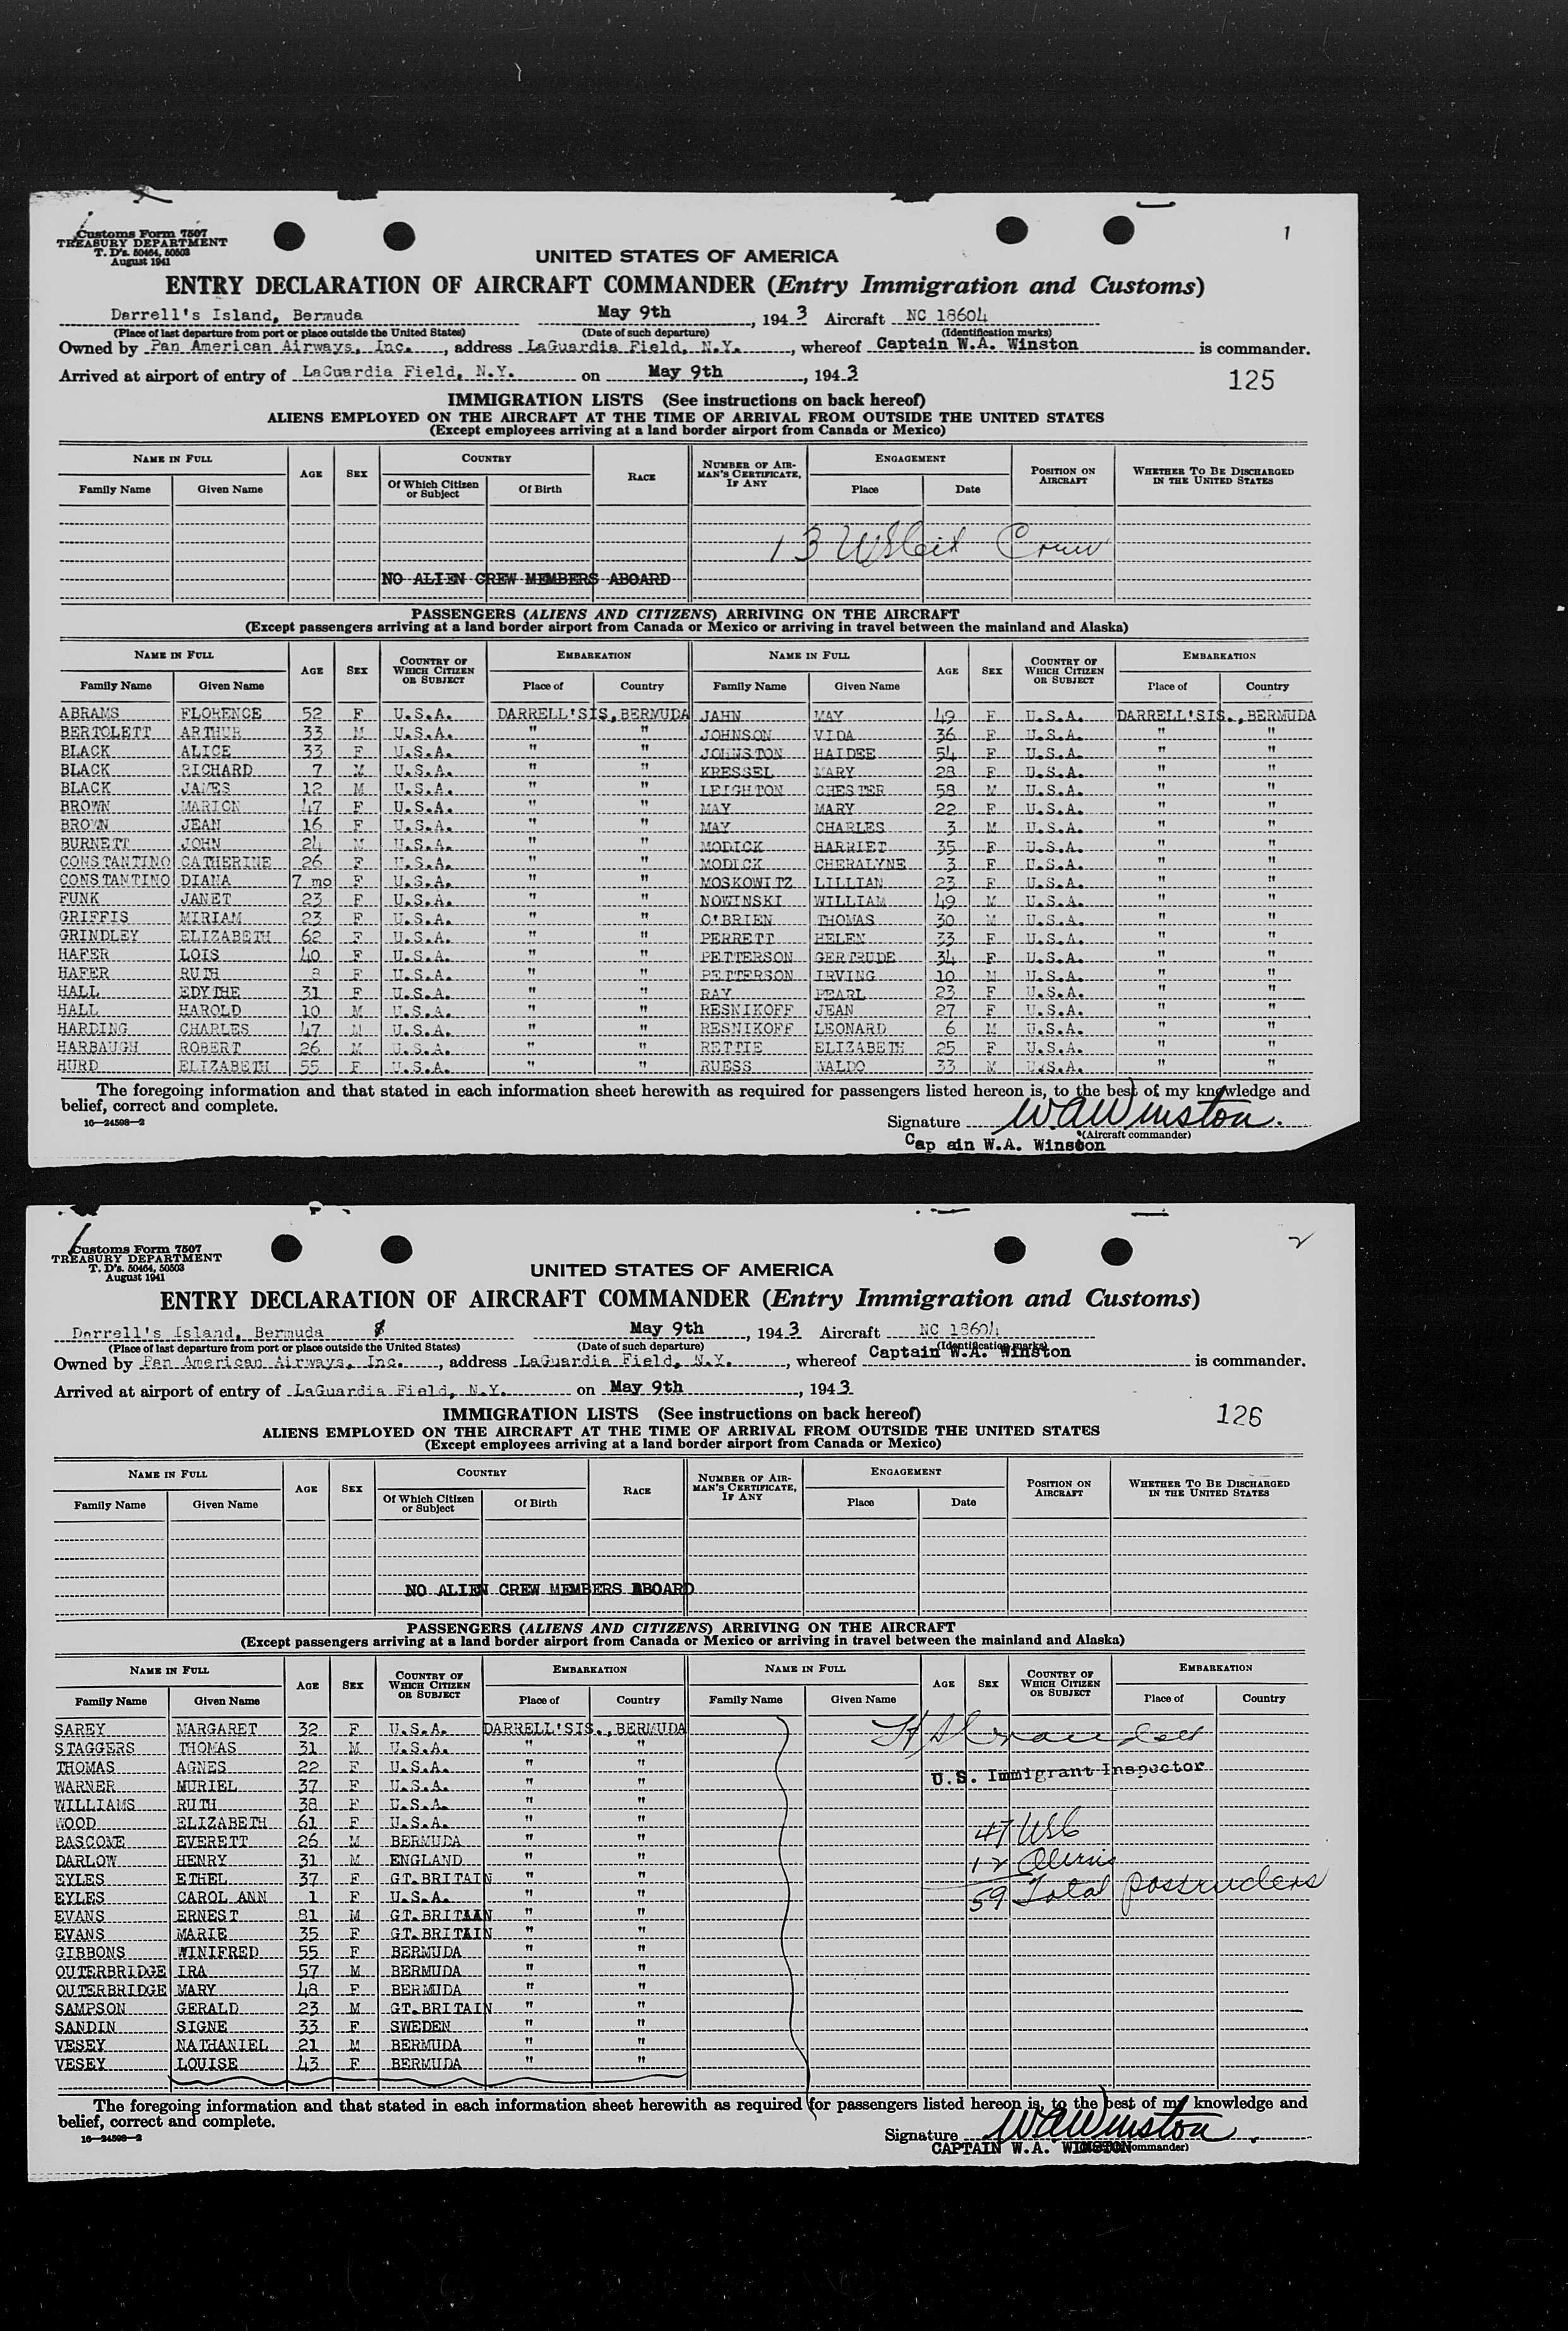 1
Customs Form 7507
TREASURY DEPARTMENT
T. D's. 50464, 50503
August 1941
UNITED STATES OF AMERICA
ENTRY DECLARATION OF AIRCRAFT COMMANDER (Entry Immigration and Customs)
Darrell's Island, Bermuda May 9th, 1943 Aircraft NC 18604
(Place of last departure from port or place outside the United States) (Date of such departure) (Identification marks)
Owned by Pan American Airways, Inc., address LaGuardia Field, N.Y., whereof Captain W.A. Winston is commander.
Arrived at airport of entry of LaGuardia Field, N.Y. on May 9th, 1943
125
IMMIGRATION LISTS (See instructions on back hereof)
ALIENS EMPLOYED ON THE AIRCRAFT AT THE TIME OF ARRIVAL FROM OUTSIDE THE UNITED STATES
(Except employees arriving at a land border airport from Canada or Mexico)
NAME IN FULL AGE SEX COUNTRY RACE NUMBER OF AIRMAN'S CERTIFICATE, IF ANY ENGAGEMENT POSITION ON AIRCRAFT WHETHER TO BE DISCHARGED IN THE UNITED STATES
Family Name Given Name Of Which Citizen or Subject Of Birth Place Date
13 USCit Crew
NO ALIEN CREW MEMBERS ABOARD
PASSENGERS (ALIENS AND CITIZENS) ARRIVING ON THE AIRCRAFT
(Except passengers arriving at a land border airport from Canada or Mexico or arriving in travel between the mainland and Alaska)
NAME IN FULL AGE SEX COUNTRY OF WHICH CITIZEN OR SUBJECT EMBARKATION NAME IN FULL AGE SEX COUNTRY OF WHICH CITIZEN OR SUBJECT EMBARKATION
Family Name Given Name Place of Country Family Name Given Name Place of Country
ABRAMS FLORENCE 52 F U.S.A. DARRELL'S IS, BERMUDA JAHN MAY 49 F U.S.A. DARRELL'S IS., BERMUDA
BERTOLETT ARTHUR 33 M U.S.A. " " JOHNSON VIDA 36 F U.S.A. " "
BLACK ALICE 33 F U.S.A. " " JOHNSTON HAIDEE 54 F U.S.A. " "
BLACK RICHARD 7 M U.S.A. " " KRESSEL MARY 28 F U.S.A. " "
BLACK JAMES 12 M U.S.A. " " LEIGHTON CHESTER 58 M U.S.A. " "
BROWN MARION 47 F U.S.A. " " MAY MARY 22 F U.S.A. " "
BROWN JEAN 16 F U.S.A. " " MAY CHARLES 3 M U.S.A. " "
BURNETT JOHN 24 M U.S.A. " " MODICK HARRIET 35 F U.S.A. " "
CONSTANTINO CATHERINE 26 F U.S.A. " " MODICK CHERALYNE 3 F U.S.A. " "
CONSTANTINO DIANA 7 mo F U.S.A. " " MOSKOWITZ LILLIAN 23 F U.S.A. " "
FUNK JANET 23 F U.S.A. " " NOWINSKI WILLIAM 49 M U.S.A. " "
GRIFFIS MIRIAM 23 F U.S.A. " " O'BRIEN THOMAS 30 M U.S.A. " "
GRINDLEY ELIZABETH 62 F U.S.A. " " PERRETT HELEN 33 F U.S.A. " "
HAFER LOIS 40 F U.S.A. " " PETTERSON GERTRUDE 34 F U.S.A. " "
HAFER RUTH 8 F U.S.A. " " PETTERSON IRVING 10 M U.S.A. " "
HALL EDYTHE 31 F U.S.A. " " RAY PEARL 23 F U.S.A. " "
HALL HAROLD 10 M U.S.A. " " RESNIKOFF JEAN 27 F U.S.A. " "
HARDING CHARLES 47 M U.S.A. " " RESNIKOFF LEONARD 6 M U.S.A. " "
HARBAUGH ROBERT 26 M U.S.A. " " RETTIE ELIZABETH 25 F U.S.A. " "
HURD ELIZABETH 55 F U.S.A. " " RUESS WALDO 33 M U.S.A. " "
The foregoing information and that stated in each information sheet herewith as required for passengers listed hereon is, to the best of my knowledge and
belief, correct and complete.
16—24598—2
Signature W.A. Winston.
(Aircraft commander)
Cap ain W.A. Winston
2
Customs Form 7507
TREASURY DEPARTMENT
T. D's. 50464, 50503
August 1941
UNITED STATES OF AMERICA
ENTRY DECLARATION OF AIRCRAFT COMMANDER (Entry Immigration and Customs)
Darrell's Island, Bermuda May 9th, 1943 Aircraft NC 18604
(Place of last departure from port or place outside the United States) (Date of such departure) (Identification marks)
Owned by Pan American Airways, Inc., address LaGuardia Field, N.Y., whereof Captain W.A. Winston is commander.
Arrived at airport of entry of LaGuardia Field, N.Y. on May 9th, 1943
126
IMMIGRATION LISTS (See instructions on back hereof)
ALIENS EMPLOYED ON THE AIRCRAFT AT THE TIME OF ARRIVAL FROM OUTSIDE THE UNITED STATES
(Except employees arriving at a land border airport from Canada or Mexico)
NAME IN FULL AGE SEX COUNTRY RACE NUMBER OF AIRMAN'S CERTIFICATE, IF ANY ENGAGEMENT POSITION ON AIRCRAFT WHETHER TO BE DISCHARGED IN THE UNITED STATES
Family Name Given Name Of Which Citizen or Subject Of Birth Place Date
NO ALIEN CREW MEMBERS ABOARD
PASSENGERS (ALIENS AND CITIZENS) ARRIVING ON THE AIRCRAFT
(Except passengers arriving at a land border airport from Canada or Mexico or arriving in travel between the mainland and Alaska)
NAME IN FULL AGE SEX COUNTRY OF WHICH CITIZEN OR SUBJECT EMBARKATION NAME IN FULL AGE SEX COUNTRY OF WHICH CITIZEN OR SUBJECT EMBARKATION
Family Name Given Name Place of Country Family Name Given Name Place of Country
SAREY MARGARET 32 F U.S.A. DARRELL'S IS., BERMUDA
STAGGERS THOMAS 31 M U.S.A. " "
THOMAS AGNES 22 F U.S.A. " " U.S. Immigrant Inspector
WARNER MURIEL 37 F U.S.A. " "
WILLIAMS RUTH 38 F U.S.A. " "
WOOD ELIZABETH 61 F U.S.A. " " 47 USC
BASCOME EVERETT 26 M BERMUDA " "
DARLOW HENRY 31 M ENGLAND " " 12 Aliens
EYLES ETHEL 37 F GT.BRITAIN " "
EYLES CAROL ANN 1 F U.S.A. " " 59 Total
EVANS ERNEST 81 M GT.BRITAIN " "
EVANS MARIE 35 F GT.BRITAIN " "
GIBBONS WINIFRED 55 F BERMUDA " "
OUTERBRIDGE IRA 57 M BERMUDA " "
OUTERBRIDGE MARY 48 F BERMUDA " "
SAMPSON GERALD 23 M GT.BRITAIN " "
SANDIN SIGNE 33 F SWEDEN " "
VESEY NATHANIEL 21 M BERMUDA " "
VESEY LOUISE 43 F BERMUDA " "
The foregoing information and that stated in each information sheet herewith as required for passengers listed hereon is, to the best of my knowledge and
belief, correct and complete.
16—24598—2
Signature W.A. Winston.
CAPTAIN W.A. WINSTON